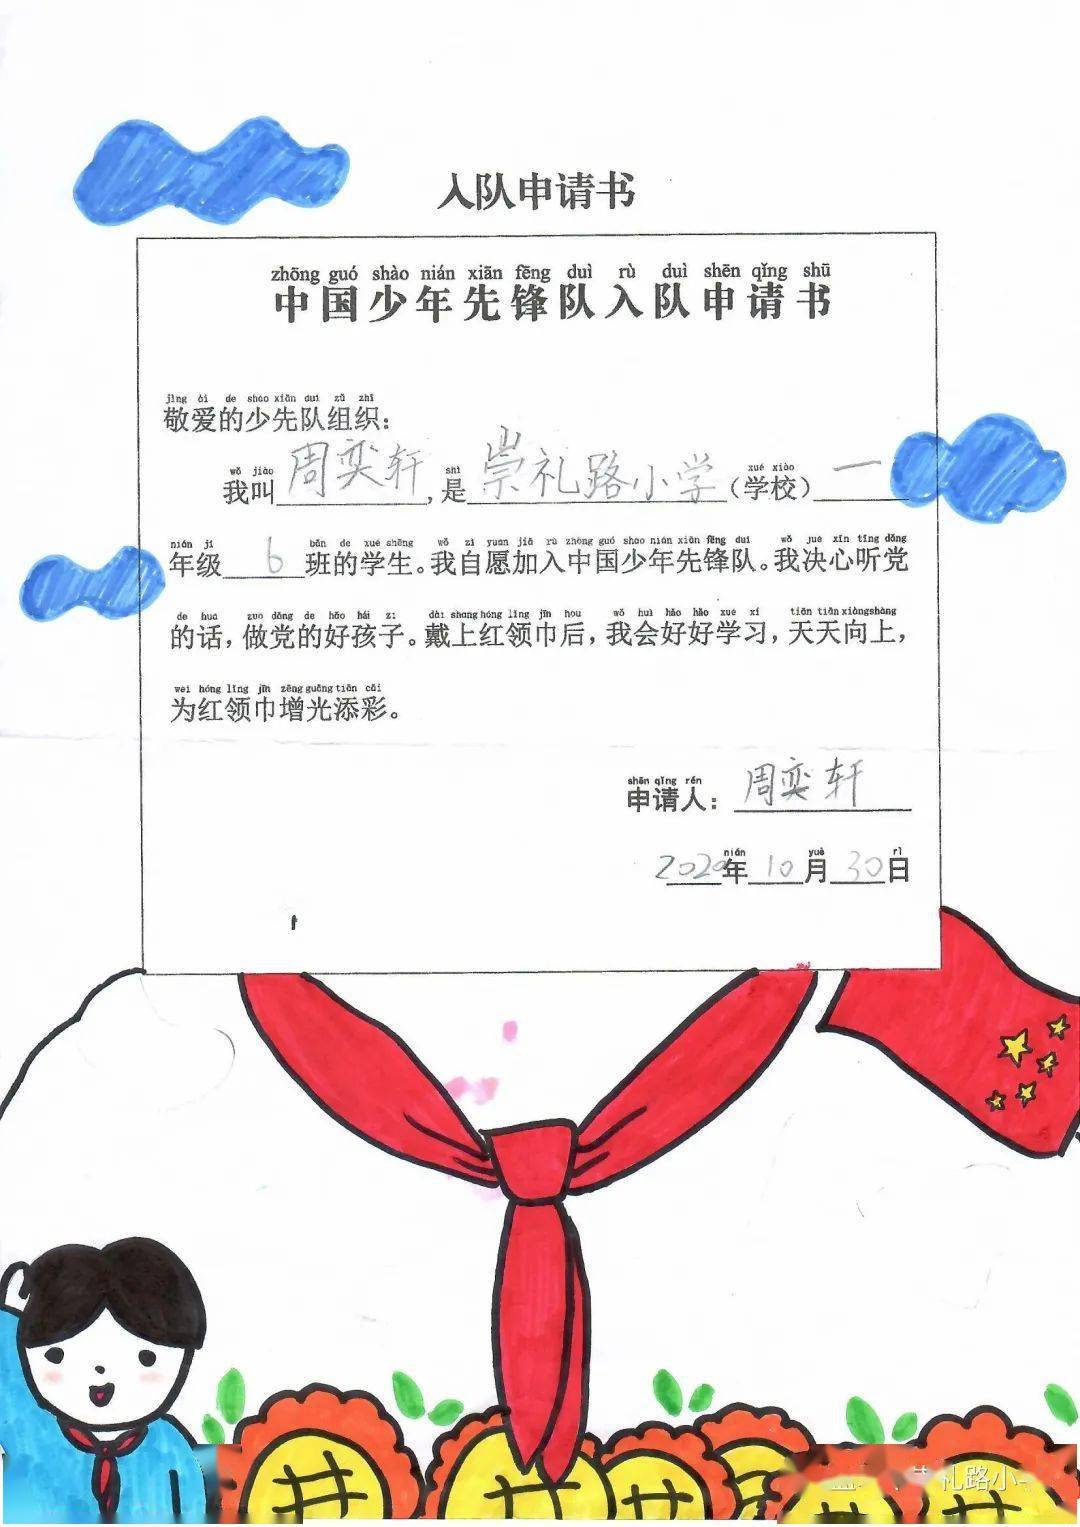 入队申请书
zhōng guó shào nián xiān fēng duì rù duì shēn qǐng shū
中国少年先锋队入队申请书
jìng ài de shao xiān duì zǔ zhī
敬爱的少先队组织：
wǒ jiào shì xué xiào
我叫周奕轩，是崇礼路小学（学校）一
nián jí bān de xué shēng wǒ zì yuan jiā rù zhōng guó shao nián xiān fēng duì wǒ jué xīn tīng dǎng
年级6班的学生。我自愿加入中国少年先锋队。我决心听党
de hua zuo dǎng de hǎo hái zi dài shang hóng lǐng jīn hou wǒ huì hǎo hǎo xué xí tiān tiān xiàng shàng
的话，做党的好孩子。戴上红领巾后，我会好好学习，天天向上，
wei hóng lǐng jīn zēng guāng tiān cǎi
为红领巾增光添彩。
shēn qǐng rén
申请人：周奕轩
nián yuè rì
2020年10月30日
礼路小